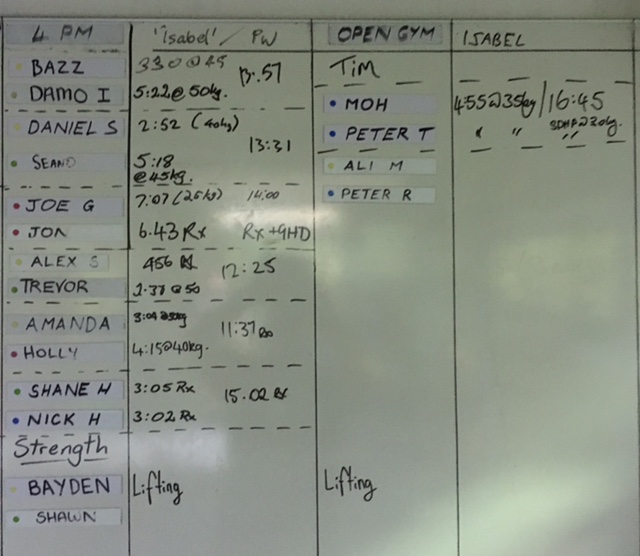 4 PM "Isabel" / PW OPEN GYM ISABEL
BAZZ 330 @ 45 13.57 Tim
DAMO I 5:22 @ 50kg. MOH 4:55 @ 35kg / 16:45
DANIEL S 2:52 (40kg) 13:31 PETER T " "
SEANO 5:18 ALI M
@45kg.
JOE G 7:07 (25kg) 14:00 PETER R
JON 6.43 Rx Rx + GHD
ALEX S 456 Rx 12:25
TREVOR @ 50
AMANDA 11:37 Rx
HOLLY 4:15@40kg.
SHANE H 3:05 Rx 15.02 Rx
NICK H 3:02 Rx
Strength
BAYDEN Lifting Lifting
SHAWN